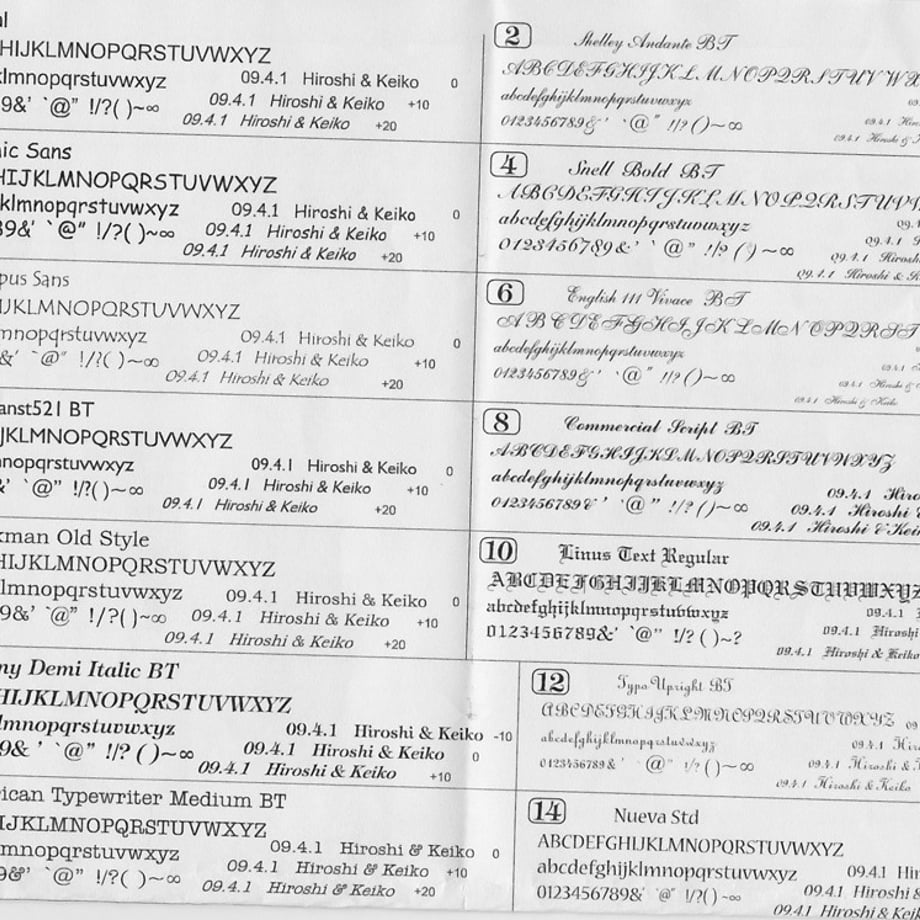 al
HIJKLMNOPQRSTUVWXYZ
klmnopqrstuvwxyz 09.4.1 Hiroshi & Keiko 0
9&' `@" !/?( )~∞ 09.4.1 Hiroshi & Keiko +10
09.4.1 Hiroshi & Keiko +20
ic Sans
HIJKLMNOPQRSTUVWXYZ
klmnopqrstuvwxyz 09.4.1 Hiroshi & Keiko 0
89&' `@" !/?( )~∞ 09.4.1 Hiroshi & Keiko +10
09.4.1 Hiroshi & Keiko +20
pus Sans
IJKLMNOPQRSTUVWXYZ
mnopqrstuvwxyz 09.4.1 Hiroshi & Keiko 0
&' `@" !/?( )~∞ 09.4.1 Hiroshi & Keiko +10
09.4.1 Hiroshi & Keiko +20
anst521 BT
JKLMNOPQRSTUVWXYZ
nopqrstuvwxyz 09.4.1 Hiroshi & Keiko 0
&' `@" !/?( )~∞ 09.4.1 Hiroshi & Keiko +10
09.4.1 Hiroshi & Keiko +20
kman Old Style
HIJKLMNOPQRSTUVWXYZ
lmnopqrstuvwxyz 09.4.1 Hiroshi & Keiko 0
9&' `@" !/?( )~∞ 09.4.1 Hiroshi & Keiko +10
09.4.1 Hiroshi & Keiko +20
ny Demi Italic BT
HIJKLMNOPQRSTUVWXYZ
lmnopqrstuvwxyz 09.4.1 Hiroshi & Keiko -10
9& ' `@" !/? ( )~∞ 09.4.1 Hiroshi & Keiko 0
09.4.1 Hiroshi & Keiko +10
rican Typewriter Medium BT
IJKLMNOPQRSTUVWXYZ
mnopqrstuvwxyz 09.4.1 Hiroshi & Keiko 0
9&' `@" !/?( )~∞ 09.4.1 Hiroshi & Keiko +10
09.4.1 Hiroshi & Keiko +20
2 Shelley Andante BT
ABCDEFGHIJKLMNOPQRSTUVWX
abcdefghijklmnopqrstuvwxyz 09
0123456789&' `@" !/?()~∞ 09.4.1 Hir
09.4.1 Hiroshi &
4 Snell Bold BT
ABCDEFGHIJKLMNOPQRSTUVW
abcdefghijklmnopqrstuvwxyz 09.
0123456789&' `@" !/? ( )~∞ 09.4.1 H
09.4.1 Hiroshi & K
6 English 111 Vivace BT
ABCDEFGHIJKLMNOPQRST
abcdefghijklmnopqrstuvwxyz 09.4.1
0123456789&' `@" !/?()~∞ 09.4.1 Hiroshi &
09.4.1 Hiroshi & Keiko
8 Commercial Script BT
ABCDEFGHIJKLMNOPQRSTUVWXYZ
abcdefghijklmnopqrstuvwxyz 09.4.1 Hiro
0123456789&' `@" !/?()~∞ 09.4.1 Hiroshi &
09.4.1 Hiroshi & Kei
10 Linus Text Regular
ABCDEFGHIJKLMNOPQRSTUVWXYZ
abcdefghijklmnopqrstuvwxyz 09.4.1
0123456789&' `@" !/? ( )~? 09.4.1 Hiroshi
09.4.1 Hiroshi & Keiko
12 Typo Upright BT
ABCDEFGHIJKLMNOPQRSTUVWXYZ 09
abcdefghijklmnopqrstuvwxyz 09.4.1 H
0123456789&' `@" !/?( )~∞ 09.4.1 Hiroshi &
09.4.1 Hiroshi & Keiko
14 Nueva Std
ABCDEFGHIJKLMNOPQRSTUVWXYZ
abcdefghijklmnopqrstuvwxyz 09.4.1 Hi
0123456789& `@" !/?()~∞ 09.4.1 Hiroshi
09.4.1 Hiroshi & Keik